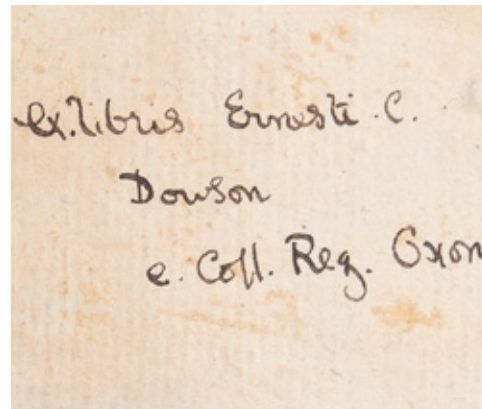 ex. libris Ernesti. C.
Dowson
e. Coll. Reg. Oxon